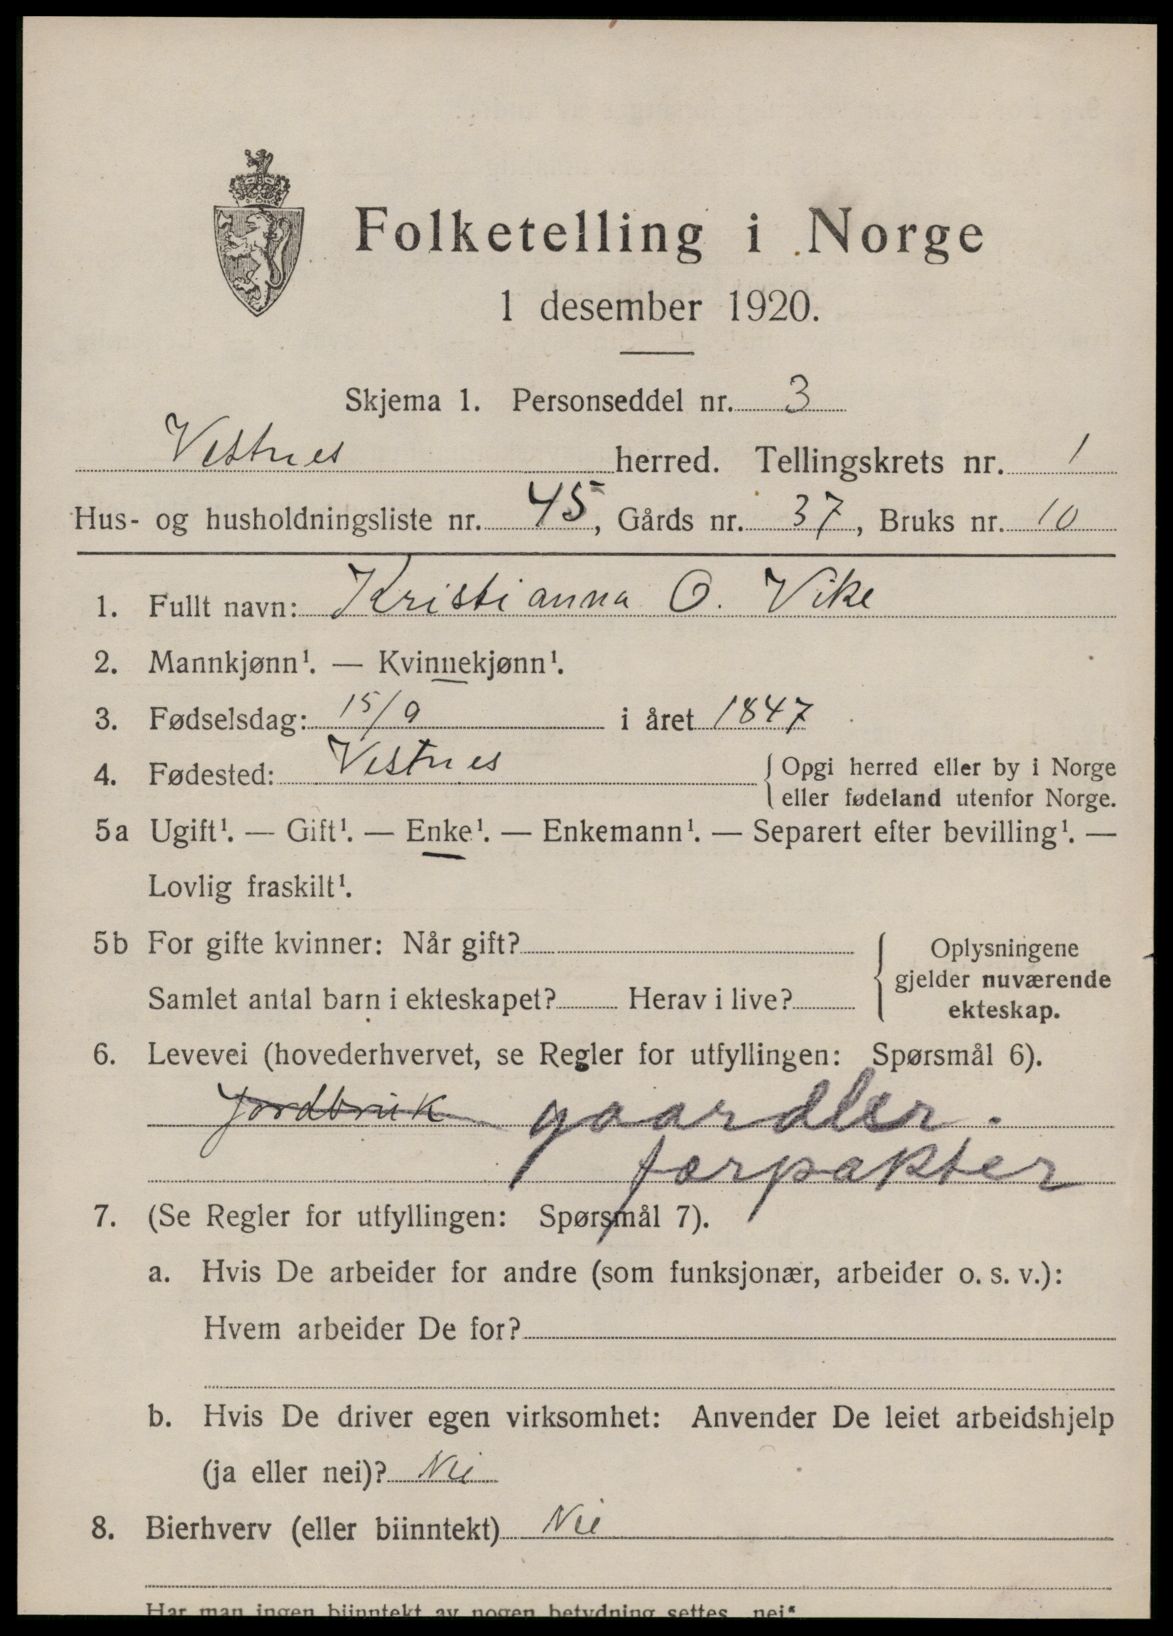 Folketelling i Norge
1 desember 1920.
Skjema 1. Personseddel nr. 3
Vestnes herred. Tellingskrets nr. 1
Hus- og husholdningsliste nr. 45, Gårds nr. 37, Bruks nr. 10
1. Fullt navn: Kristianna O. Vike
2. Mannkjønn¹. — Kvinnekjønn¹.
3. Fødselsdag: 15/9 i året 1847
4. Fødested: Vestnes { Opgi herred eller by i Norge
eller fødeland utenfor Norge.
5a Ugift¹. — Gift¹. — Enke¹. — Enkemann¹. — Separert efter bevilling¹. —
Lovlig fraskilt¹.
5b For gifte kvinner: Når gift? { Oplysningene
Samlet antal barn i ekteskapet? Herav i live? gjelder nuværende
ekteskap.
6. Levevei (hovederhvervet, se Regler for utfyllingen: Spørsmål 6).
Jordbruk gaardler.
forpakter
7. (Se Regler for utfyllingen: Spørsmål 7).
a. Hvis De arbeider for andre (som funksjonær, arbeider o. s. v.):
Hvem arbeider De for?
b. Hvis De driver egen virksomhet: Anvender De leiet arbeidshjelp
(ja eller nei)? Nei
8. Bierhverv (eller biinntekt) Nei
Har man ingen biinntekt av nogen betydning settes „nei“